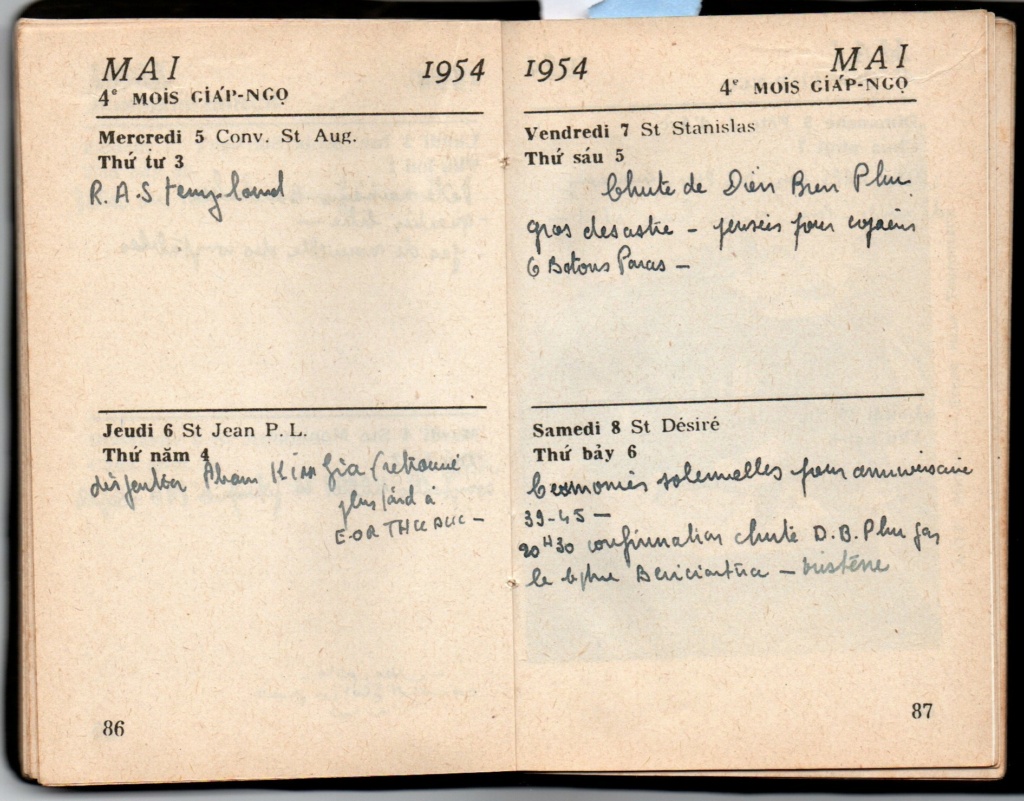 MAI 1954
4e MOIS GIÁP-NGỌ
Mercredi 5 Conv. St Aug.
Thứ tư 3
R.A.S
Jeudi 6 St Jean P. L.
Thứ năm 4
Pham Kim Gia (retrouvé
plus tard à
86
1954 MAI
4e MOIS GIÁP-NGỌ
Vendredi 7 St Stanislas
Thứ sáu 5
Chute de Dien Bien Phu
gros desastre – pensées pour copains
6 Batons Paras –
Samedi 8 St Désiré
Thứ bảy 6
Ceremonies solennelles pour anniversaire
39-45 –
20H30 confirmation chute D.B.Phu par
le – tristesse
87